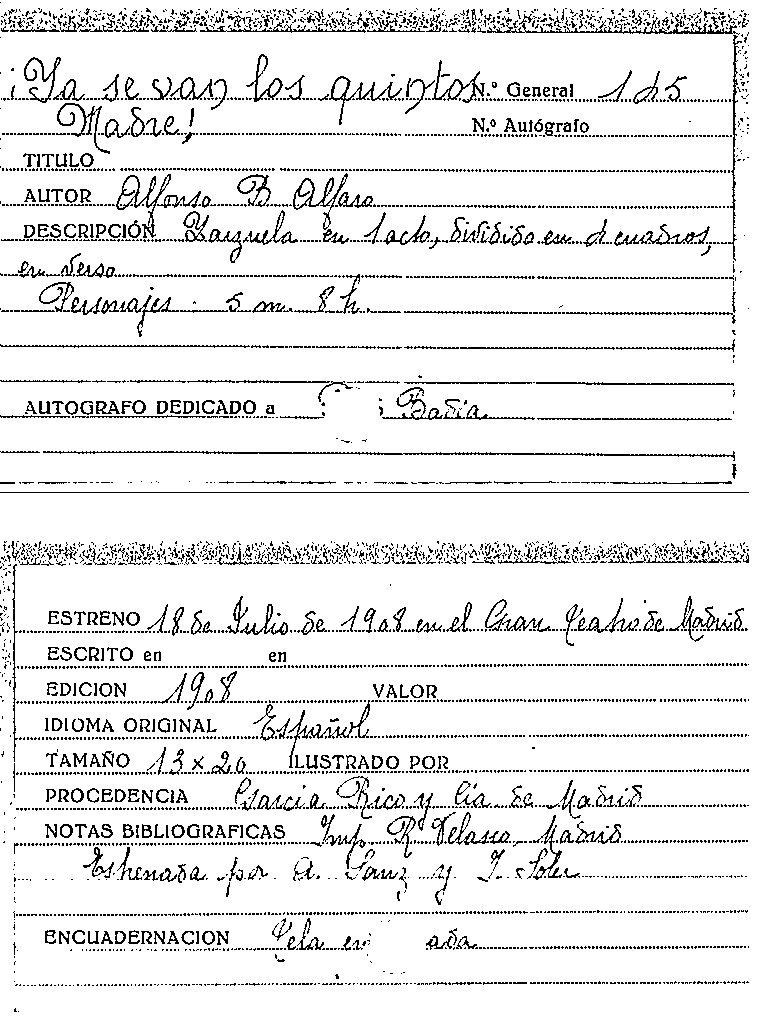 ¡Ya se van los quintos N.º General 145
Madre! N.º Autógrafo
TITULO
AUTOR Alfonso B Alfaro
DESCRIPCIÓN Zarzuela en 1 acto, dividido en 4 cuadros,
en verso
Personajes - 5 m. 8 h.
AUTOGRAFO DEDICADO a Badía
ESTRENO 18 de Julio de 1908 en el Gran Teatro de Madrid
ESCRITO en en
EDICION 1908 VALOR
IDIOMA ORIGINAL Español
TAMAÑO 13 x 20 ILUSTRADO POR
PROCEDENCIA García Rico y Cía. de Madrid
NOTAS BIBLIOGRAFICAS Imp. R. Velasco, Madrid
Estrenada por A. Sanz y J. Soler
ENCUADERNACION Tela